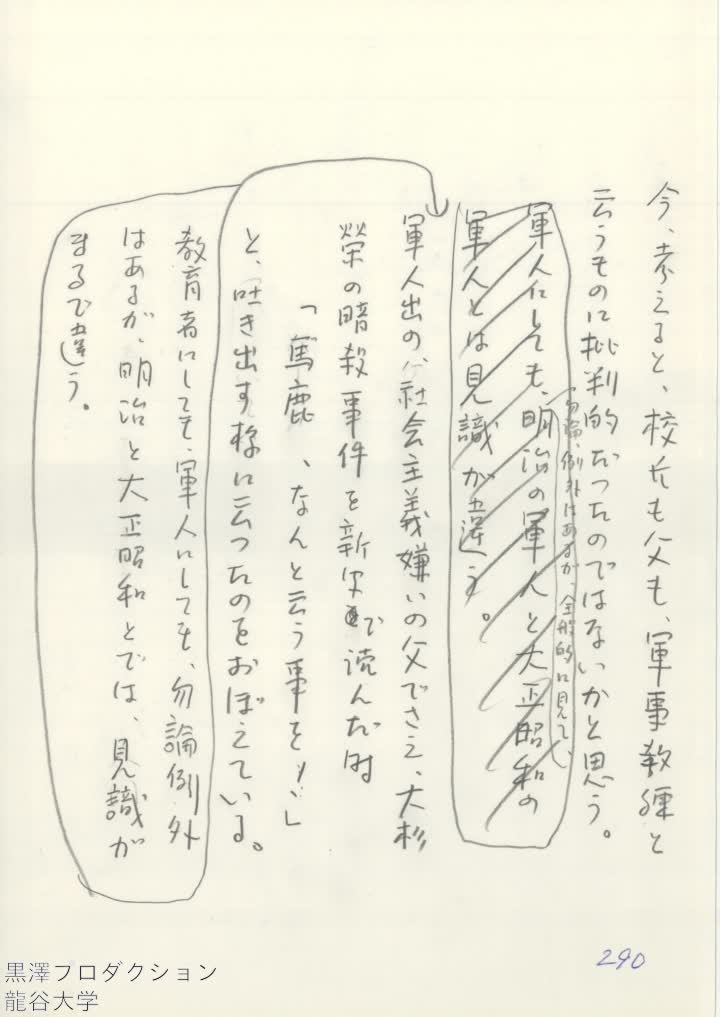 今、考えると、校長も父も、軍事教練と
云うものに批判的だつたのではないかと思う。
勿論、例外はあるが、全般的に見て、
軍人にしても、明治の軍人と大正昭和の
軍人とは見識が違う。
軍人出の、社会主義嫌いの父でさえ、大杉
榮の暗殺事件を新聞で読んだ時
「馬鹿、なんと云う事を!」
と、吐き出す様に云つたのをおぼえている。
教育者にしても、軍人にしても、勿論例外
はあるが、明治と大正昭和とでは、見識が
まるで違う。
290
黒澤プロダクション
龍谷大学